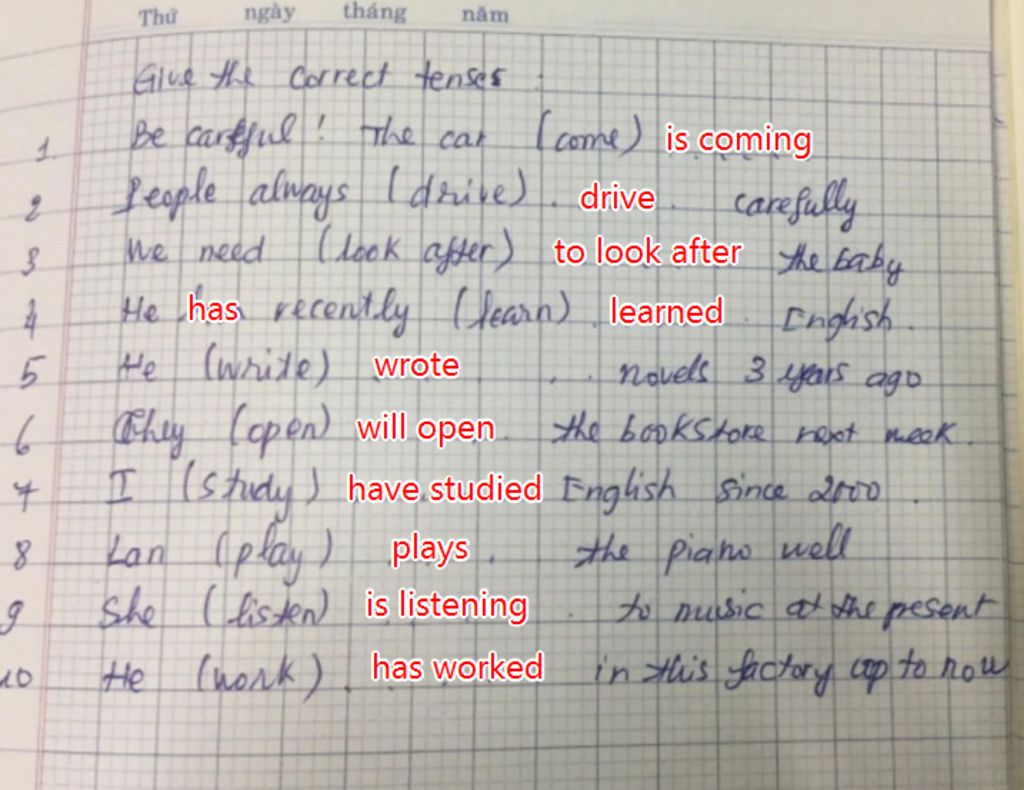 Thứ ngày tháng năm
Give the correct tenses :
1. Be careful ! The car (come) is coming
2 People always (drive) . drive . carefully
3 We need (look after) to look after the baby
4 He has recently (learn) . learned . English .
5 He (write) wrote . . novels 3 years ago
6 They (open) will open . the bookstore next week .
7 I (study) have studied English since 2000 .
8 Lan (play) plays . the piano well
9 She (listen) is listening . to music at the present
10 He (work) . has worked in this factory up to now